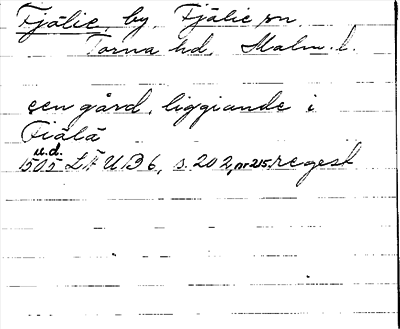 Fjälie by. Fjälie sn
Torna hd. Malm. l.
een gård, liggiande i
Fiälä
u.d.
1505 LÄUB 6, s. 202, nr 215. regest